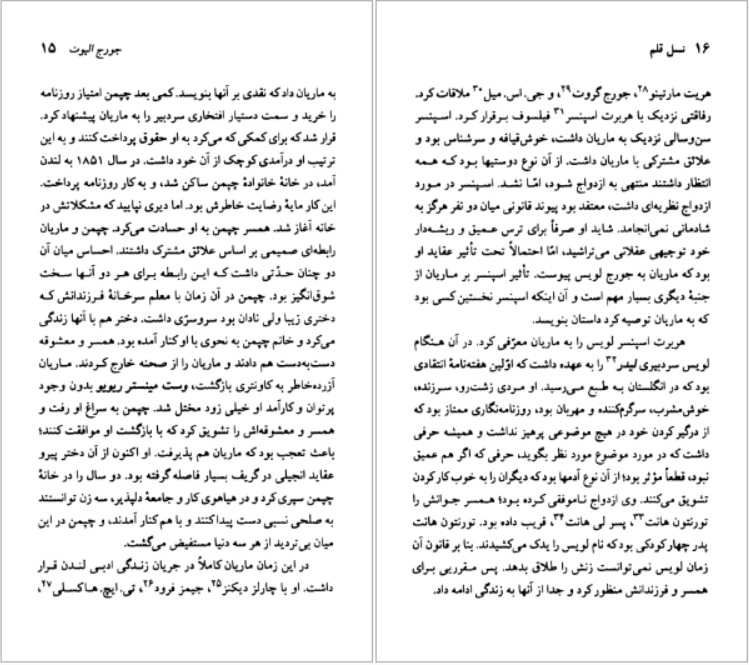 جورج الیوت ۱۵
به ماریان داد که نقدی بر آنها بنویسد. کمی بعد چپمن امتیاز روزنامه
را خرید و سمت دستیار افتخاری سردبیر را به ماریان پیشنهاد کرد.
قرار شد که برای کمکی که می‌کرد به او حقوق پرداخت کنند و به این
ترتیب او درآمدی کوچک از آن خود داشت. در سال ۱۸۵۱ به لندن
آمد، در خانهٔ خانوادهٔ چپمن ساکن شد، و به کار روزنامه پرداخت.
این کار مایهٔ رضایت خاطرش بود. اما دیری نپایید که مشکلاتش در
خانه آغاز شد. همسر چپمن به او حسادت می‌کرد. چپمن و ماریان
رابطه‌ای صمیمی بر اساس علائق مشترک داشتند. احساس میان آن
دو چنان حدّتی داشت که این رابطه برای هر دو آنها سخت
شوق‌انگیز بود. چپمن در آن زمان با معلم سرخانهٔ فرزندانش که
دختری زیبا ولی نادان بود سروسرّی داشت. دختر هم با آنها زندگی
می‌کرد و خانم چپمن به نحوی با او کنار آمده بود. همسر و معشوقه
دست‌به‌دست هم دادند و ماریان را از صحنه خارج کردند. ماریان
آزرده‌خاطر به کاونتری بازگشت، وست مینستر ریویو بدون وجود
پرتوان و کارآمد او خیلی زود مختل شد. چپمن به سراغ او رفت و
همسر و معشوقه‌اش را تشویق کرد که با بازگشت او موافقت کنند؛
باعث تعجب بود که ماریان هم پذیرفت. او اکنون از آن دختر پیرو
عقاید انجیلی در گریف بسیار فاصله گرفته بود. دو سال را در خانهٔ
چپمن سپری کرد و در هیاهوی کار و جامعهٔ دلپذیر، سه زن توانستند
به صلحی نسبی دست پیدا کنند و با هم کنار آمدند، و چپمن در این
میان بی‌تردید از هر سه دنیا مستفیض می‌گشت.
در این زمان ماریان کاملاً در جریان زندگی ادبی لندن قرار
داشت. او با چارلز دیکنز۲۵، جیمز فرود۲۶، تی. ایچ. هاکسلی۲۷،
۱۶ نسل قلم
هریت مارتینو۲۸، جورج گروت۲۹، و جی. اس. میل۳۰ ملاقات کرد.
رفاقتی نزدیک با هربرت اسپنسر۳۱ فیلسوف برقرار کرد. اسپنسر
سن‌وسالی نزدیک به ماریان داشت، خوش‌قیافه و سرشناس بود و
علائق مشترکی با ماریان داشت. از آن نوع دوستیها بود که همه
انتظار داشتند منتهی به ازدواج شود، امّا نشد. اسپنسر در مورد
ازدواج نظریه‌ای داشت، معتقد بود پیوند قانونی میان دو نفر هرگز به
شادمانی نمی‌انجامد. شاید او صرفاً برای ترس عمیق و ریشه‌دار
خود توجیهی عقلانی می‌تراشید، امّا احتمالاً تحت تأثیر عقاید او
بود که ماریان به جورج لویس پیوست. تأثیر اسپنسر بر ماریان از
جنبهٔ دیگری بسیار مهم است و آن اینکه اسپنسر نخستین کسی بود
که به ماریان توصیه کرد داستان بنویسد.
هربرت اسپنسر لویس را به ماریان معرّفی کرد. در آن هنگام
لویس سردبیری لیدر۳۲ را به عهده داشت که اوّلین هفته‌نامهٔ انتقادی
بود که در انگلستان به طبع می‌رسید. او مردی زشت‌رو، سرزنده،
خوش‌مشرب، سرگرم‌کننده و مهربان بود، روزنامه‌نگاری ممتاز بود که
از درگیر کردن خود در هیچ موضوعی پرهیز نداشت و همیشه حرفی
داشت که در مورد موضوع مورد نظر بگوید، حرفی که اگر هم عمیق
نبود، قطعاً مؤثر بود؛ از آن نوع آدمها بود که دیگران را به خوب کار کردن
تشویق می‌کنند. وی ازدواج ناموفقی کرده بود؛ همسر جوانش را
تورنتون هانت۳۳، پسر لی هانت۳۴، فریب داده بود. تورنتون هانت
پدر چهار کودکی بود که نام لویس را یدک می‌کشیدند. بنا بر قانون آن
زمان لویس نمی‌توانست زنش را طلاق بدهد. پس مقرریی برای
همسر و فرزندانش منظور کرد و جدا از آنها به زندگی ادامه داد.